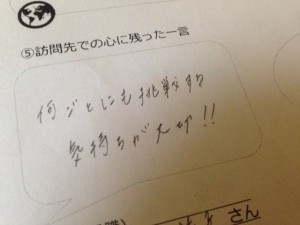 ⑤訪問先での心に残った一言
何ごとにも挑戦する
気持ちが大切!!
さん